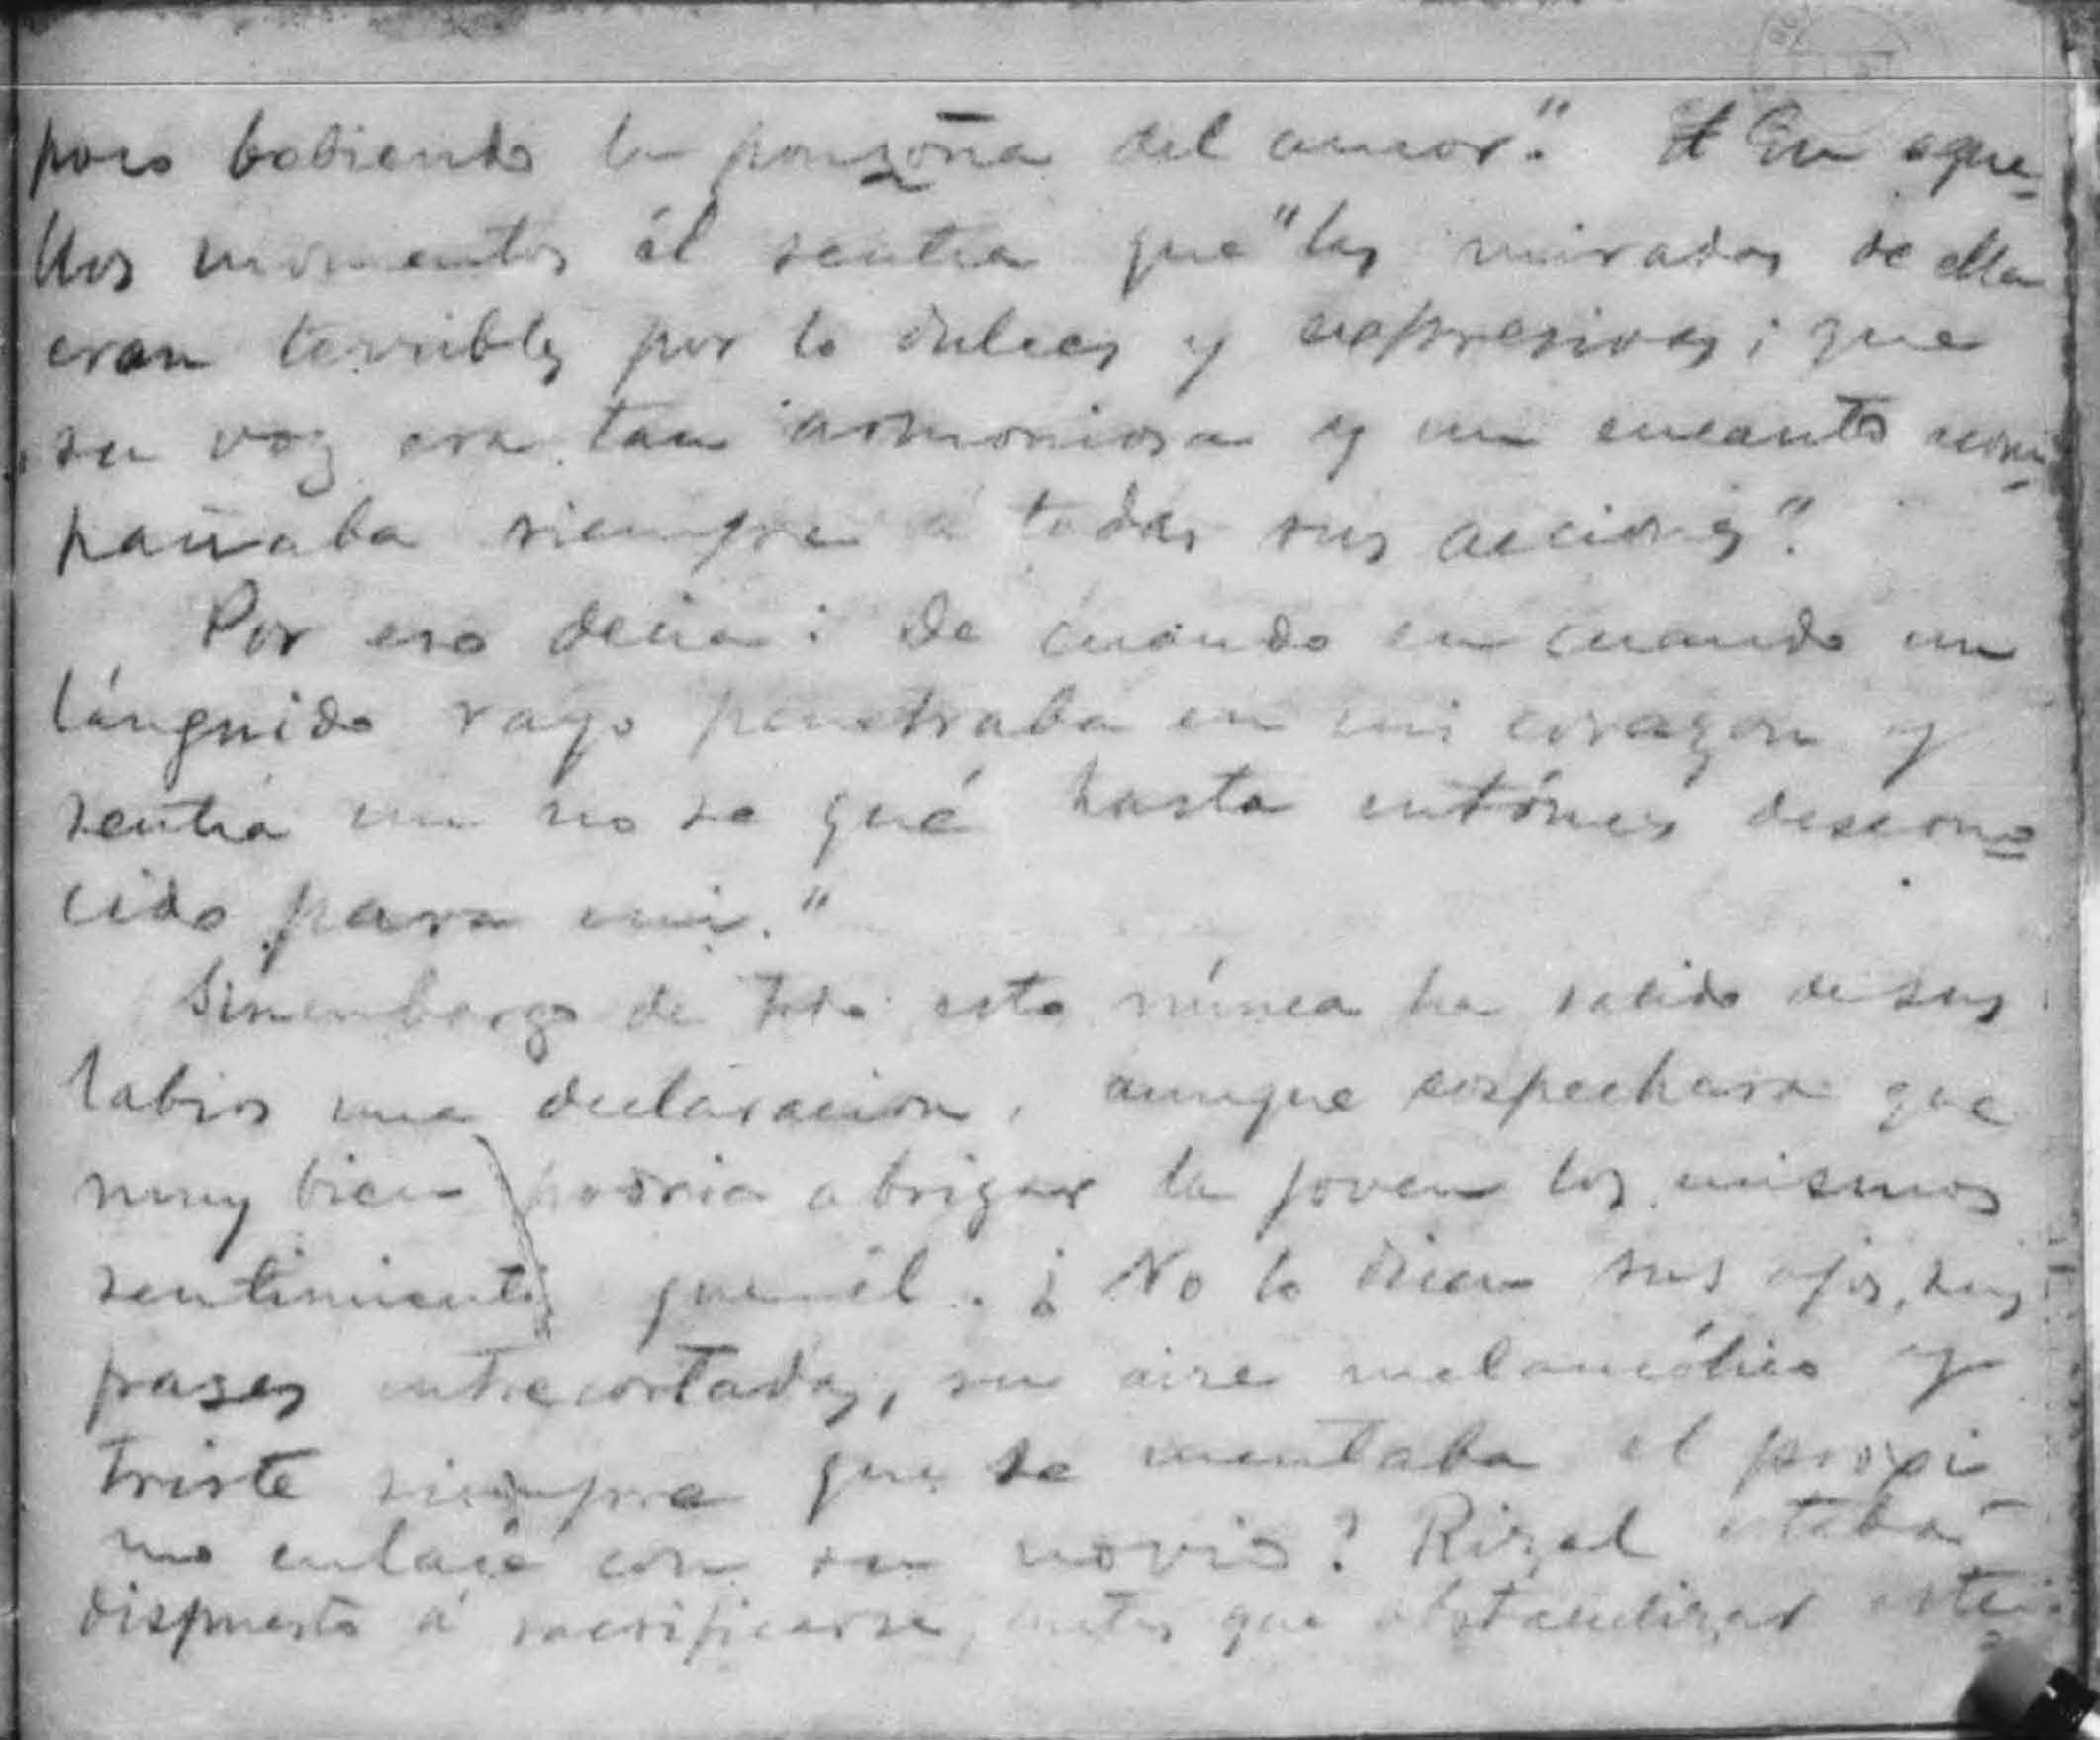 poco bebiendo la ponzoña del amor". En aque-
llos momentos él sentia que "las miradas de ella
eran terribles por lo dulces y expresivas; que
su voz era tan armoniosa y un encanto acom-
pañaba siempre á todas sus acciones".
Por eso decia: De cuando en cuando un
lánguido rayo penetraba en mi corazon y
sentia un no se qué hasta entónces descono-
cido para mi."
Sinembargo de todo esto núnca ha salido de sus
labios una declaracion, aunque sospechara que
muy bien podria abrigar la joven los mismos
sentimientos que él. ¿No lo dicen sus ojos, sus
frases entrecortadas, su aire melancólico y
triste siempre que se mentaba el proxi-
mo enlace con su novio? Rizal estaba
dispuesto á sacrificarse, antes que obstaculizar